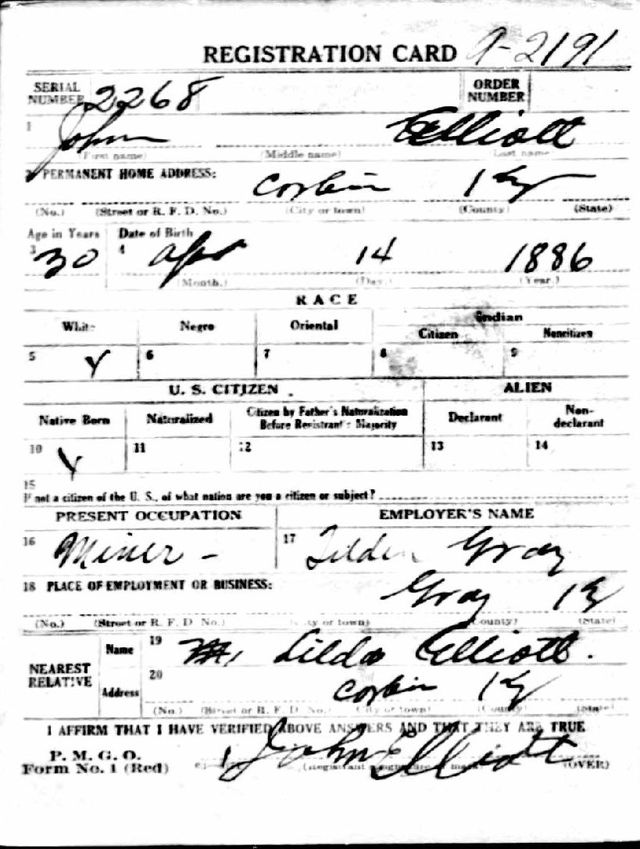 REGISTRATION CARD A-2191
SERIAL NUMBER 2268 ORDER NUMBER
1 John Elliott
(First name) (Middle name) Last name
2 PERMANENT HOME ADDRESS: Corbin Ky
(No.) (Street or R. F. D. No.) (City or town) (County) (State)
Age in Years Date of Birth
3 30 4 Apr 14 1886
(Month.) (Day.) (Year.)
RACE
White Negro Oriental Indian
Citizen Noncitizen
5 Y 6 7 8 9
U. S. CITIZEN ALIEN
Native Born Naturalized Citizen by Father's Naturalization Before Registrant's Majority Declarant Non-declarant
10 Y 11 12 13 14
15
If not a citizen of the U. S., of what nation are you a citizen or subject?
PRESENT OCCUPATION EMPLOYER'S NAME
16 Miner - 17 Tilden Gray
18 PLACE OF EMPLOYMENT OR BUSINESS: Gray Ky
(No.) (Street or R. F. D. No.) (City or town) (County) (State)
NEAREST RELATIVE Name 19 Lilda Elliott.
Address 20 Corbin Ky
(No.) (Street or R. F. D. No.) (City or town) (County) (State)
I AFFIRM THAT I HAVE VERIFIED ABOVE ANSWERS AND THAT THEY ARE TRUE
P. M. G. O.
Form No. 1 (Red) John Elliott (OVER)